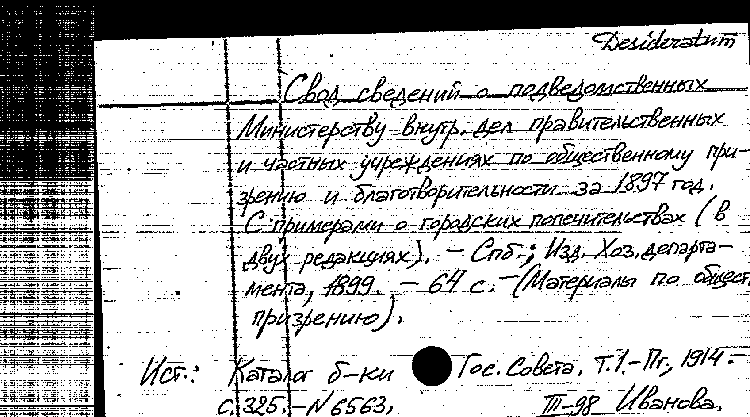 Desideratum
Свод сведений о подведомственных
Министерству внутр. дел правительственных
и частных учреждениях по общественному при-
зрению и благотворительности за 1897 год.
С примерами о городских попечительствах (в
двух редакциях). - Спб.; Изд. Хоз. департа-
мента, 1899. - 64 с. - (Материалы по общест.
призрению).
Ист.: Каталог б-ки Гос. Совета. Т.1.-Пг, 1914.-
с.325.-N 6563.
III-98 Иванова.